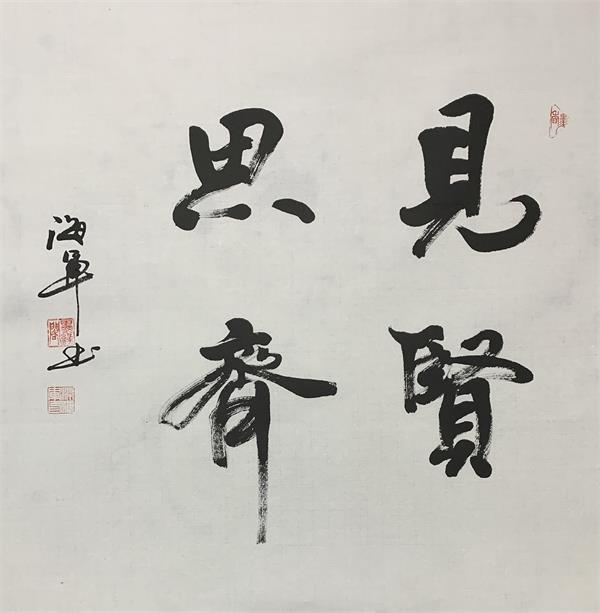 見賢
思齊
海軍书